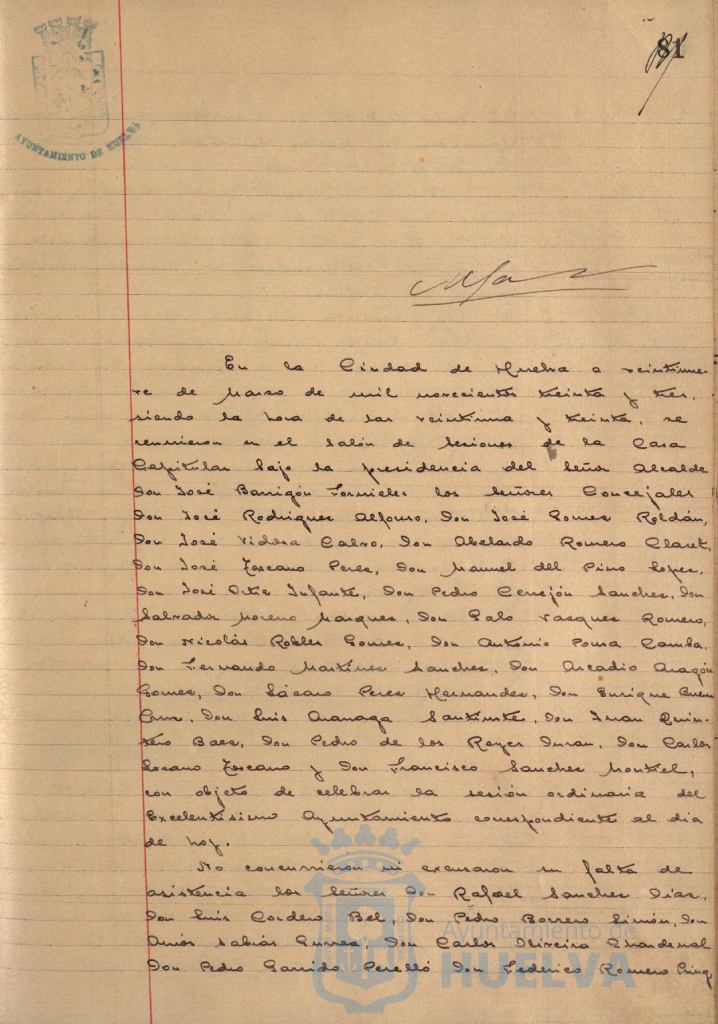 81
AYUNTAMIENTO DE HUELVA
En la Ciudad de Huelva a veintinue-
ve de Marzo de mil novecientos treinta y tres,
siendo la hora de las veintiuna y treinta, se
reunieron en el Salón de Sesiones de la Casa
Capitular bajo la presidencia del Señor Alcalde
Don José Barrigón Fornieles los Señores Concejales
Don José Rodriguez Alfonso, Don José Gomez Roldán,
Don José Videra Calvo, Don Abelardo Romero Claret,
Don José Toscano Perez, Don Manuel del Pino Lopez,
Don José Ortiz Infante, Don Pedro Cerrejón Sanchez, Don
Salvador Moreno Marquez, Don Galo Vazquez Romero,
Don Nicolás Robles Gomez, Don Antonio Pousa Camba,
Don Fernando Martinez Sanchez, Don Arcadio Aragón
Gomez, Don Lázaro Perez Hernandez, Don Enrique Buen
Cruz, Don Luis Aranaga Santinste, Don Juan Quin-
tero Baez, Don Pedro de los Reyes Duran, Don Carlos
Lozano Toscano y Don Francisco Sanchez Montiel,
con objeto de celebrar la sesión ordinaria del
Excelentisimo Ayuntamiento correspondiente al dia
de hoy.
No concurrieron ni excusaron su falta de
asistencia los Señores Don Rafael Sanchez Diaz,
Don Luis Cordero Bel, Don Pedro Borrero Limón, Don
Amós Sabrás Gurrea, Don Carlos Oliveira Chardenal
Don Pedro Garrido Perelló Don Federico Romero
Ayuntamiento de
HUELVA